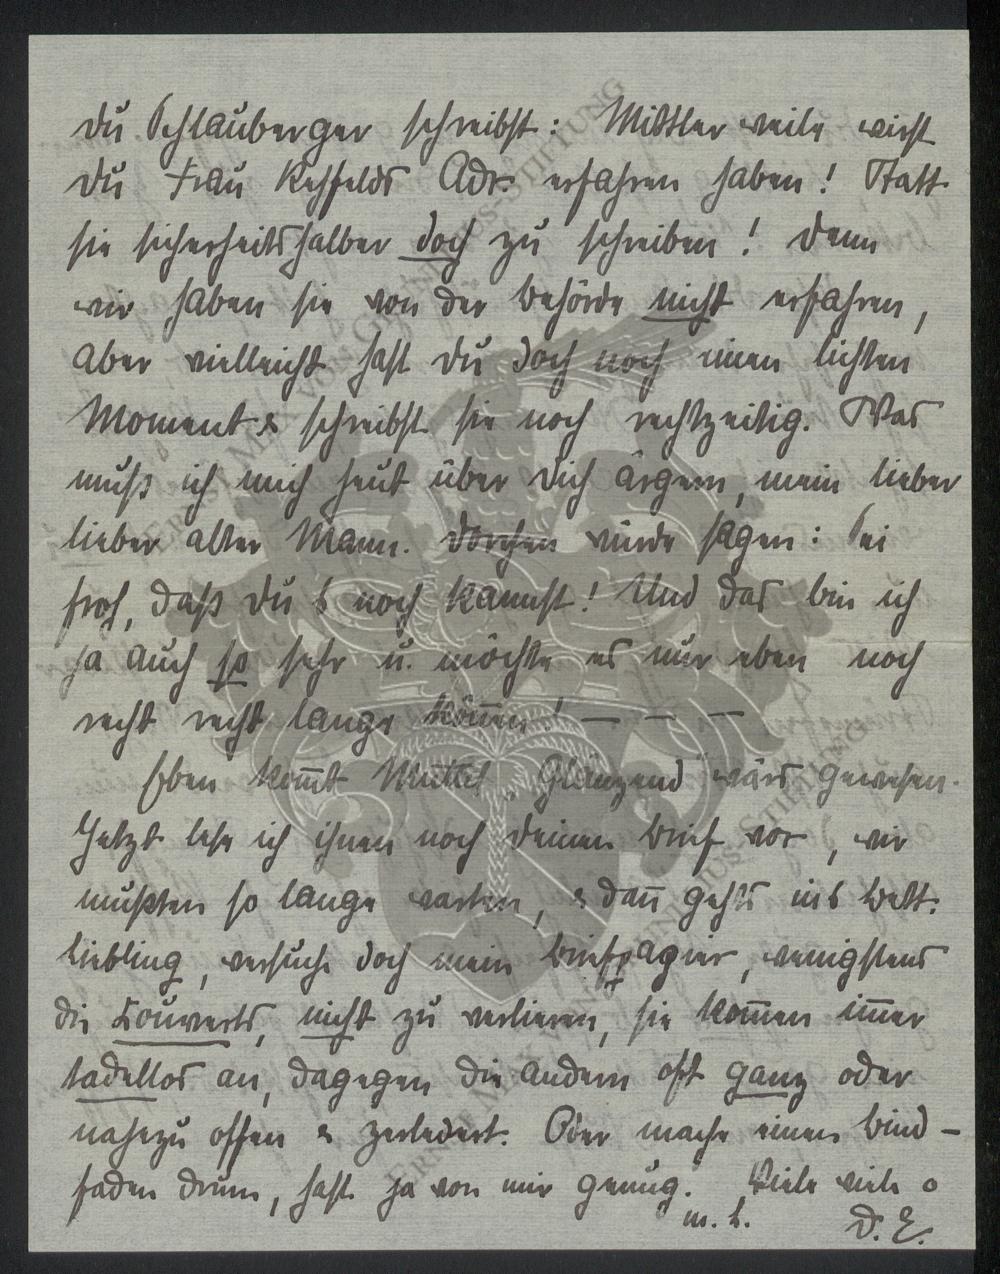 Du Schlauberger schreibst: Mittlerweile wirst
Du Frau Rehfelds Adr. erfahren haben! Statt
sie sicherheitshalber doch zu schreiben! Denn
wir haben sie von der Behörde nicht erfahren,
aber vielleicht hast Du doch noch einen lichten
Moment & schreibst sie noch rechtzeitig. Was
muß ich mich heut über Dich ärgern, mein lieber
lieber alter Mann. Dorchen würde sagen: Sei
froh, daß Du's noch kannst! Und das bin ich
ja auch so sehr u. möchte es nur eben noch
recht recht lange können! — — —
Eben kom̅t Muttel. Glänzend wärs gewesen.
Jetzt lese ich ihnen noch Deinen Brief vor, wir
mußten so lange warten, & dan̅ gehts ins Bett.
Liebling, versuche doch mein Briefpapier, wenigstens
die Couverts, nicht zu verlieren, sie kom̅en im̅er
tadellos an, dagegen die andern oft ganz oder
nahezu offen & zerledert. Oder mache einen Bind-
faden drum, hast ja von mir genug. Viele viele o
m. L. D. E.
ERNST MAX VON GRUNELIUS-STIFTUNG